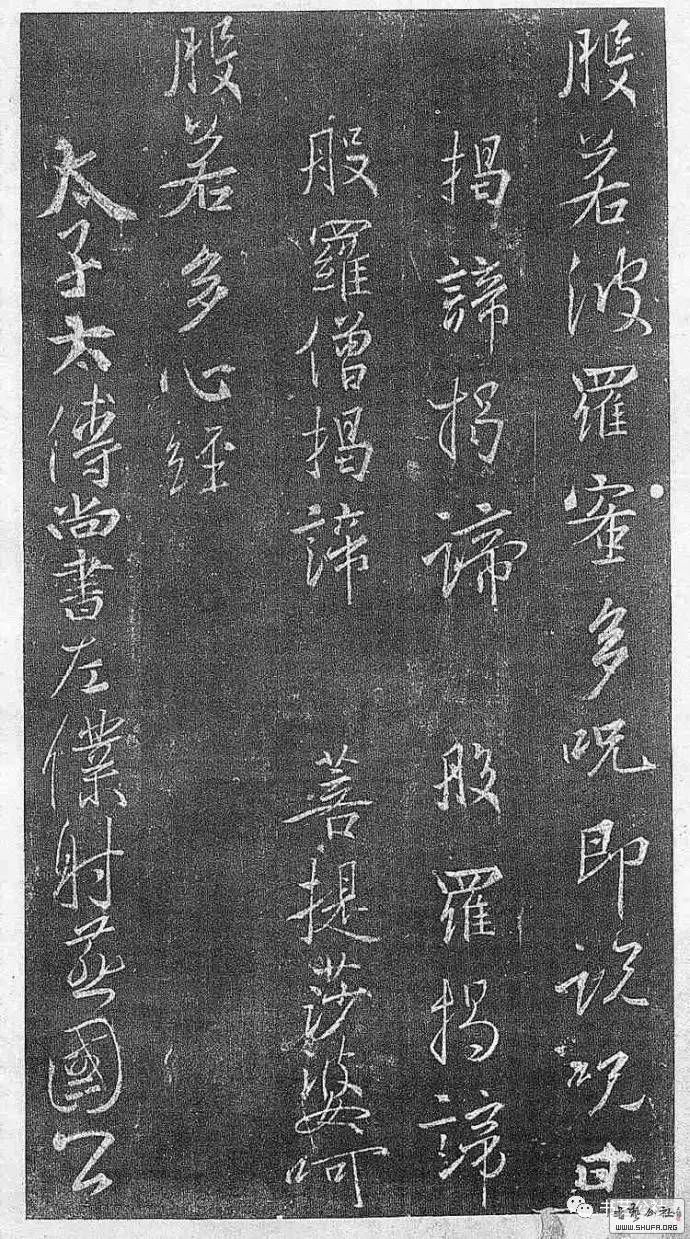 般若波羅蜜多呪即說呪曰
揭諦揭諦 般羅揭諦
般羅僧揭諦 菩提莎婆呵
般若多心經
太子太傅尚書左僕射燕國公
WWW.SHUFA.ORG